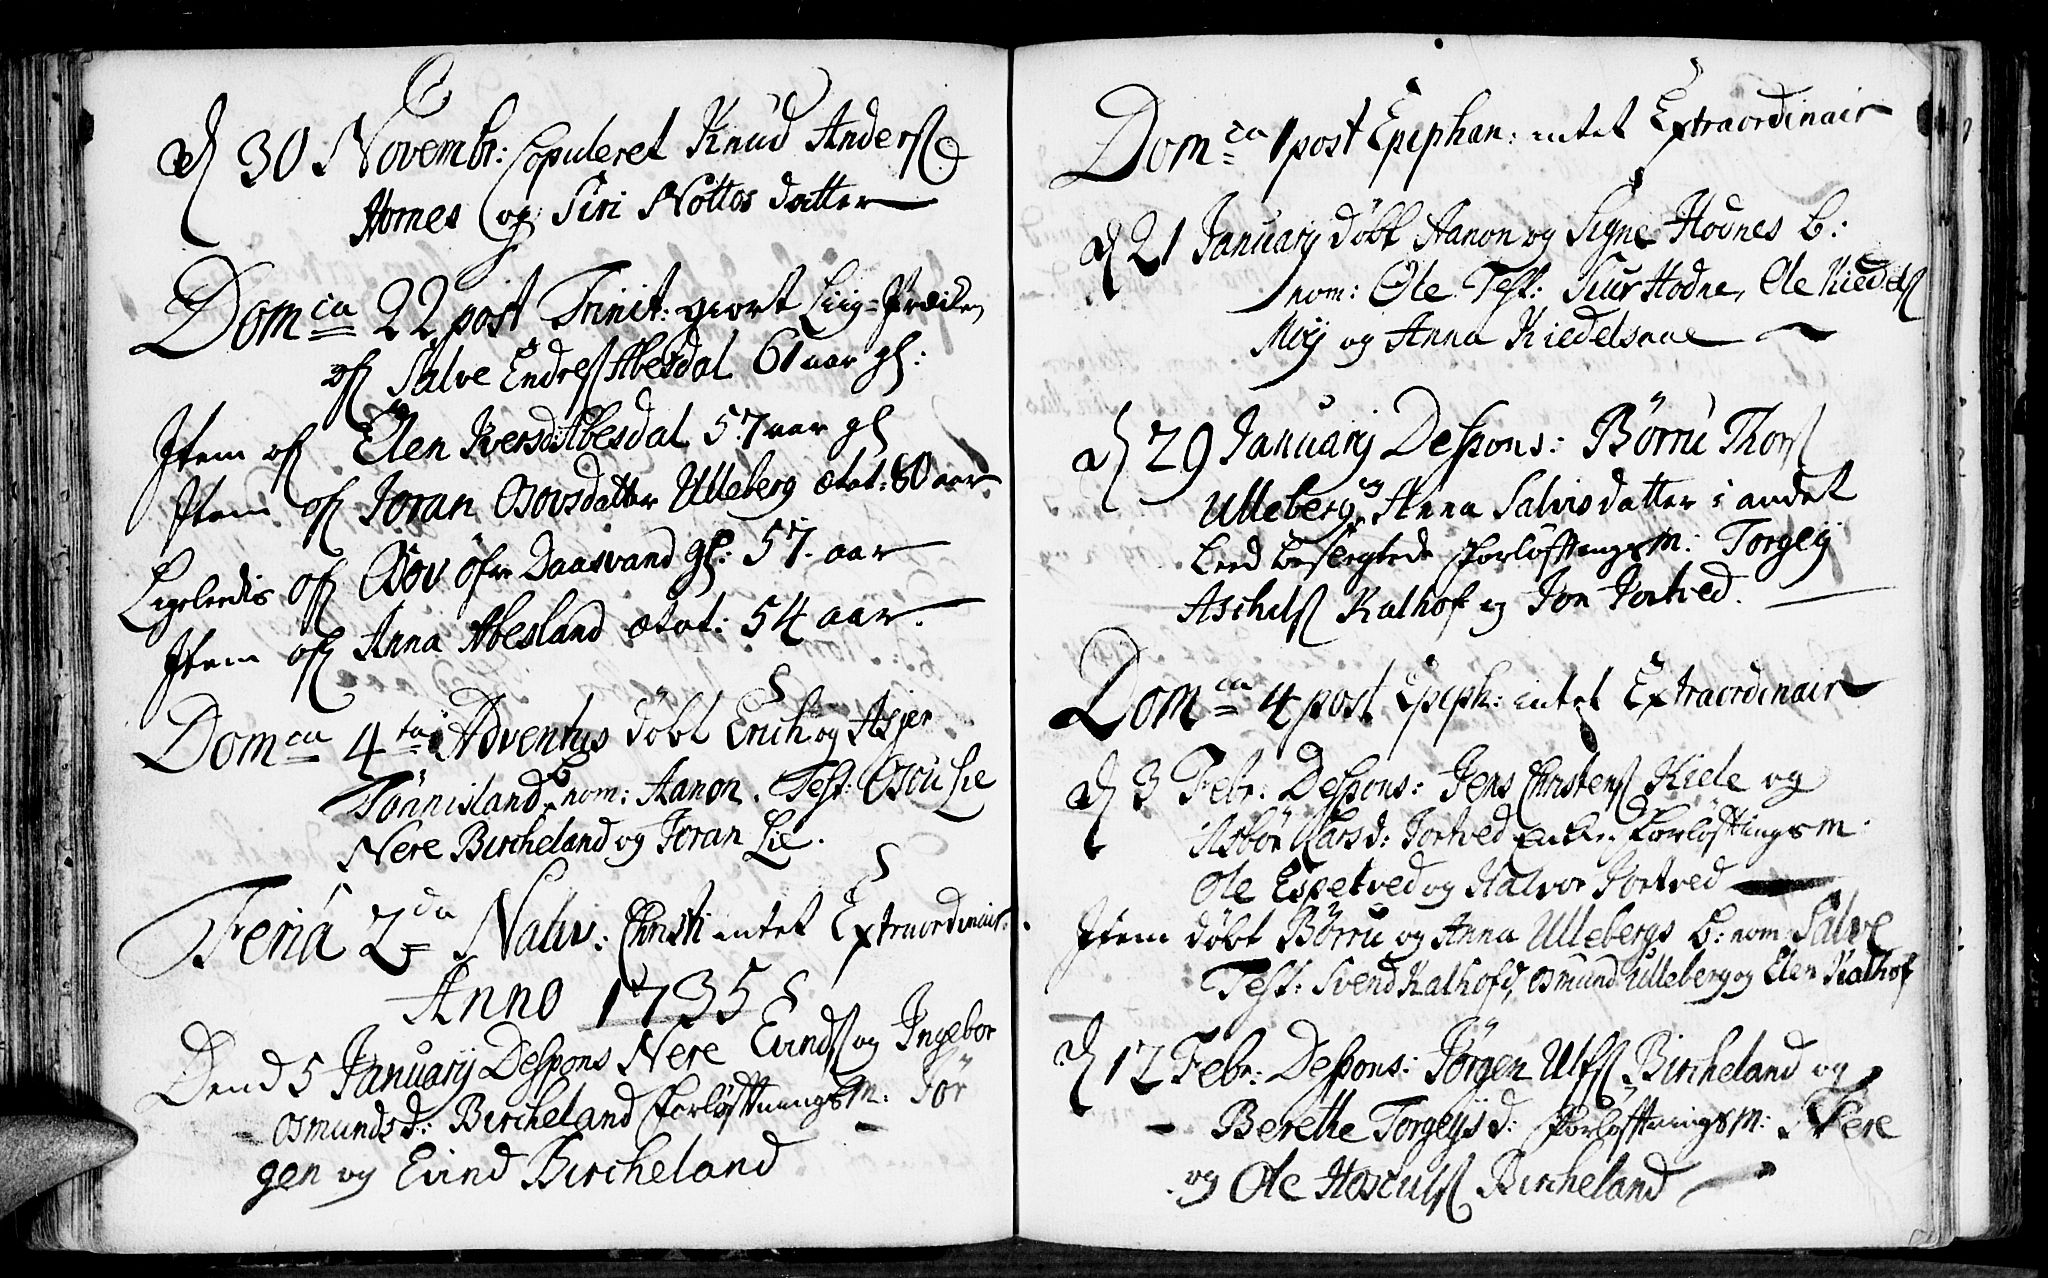 d 30 Novembr: Copuleret Knud Anders:
Homes og Siri Nottos datter
Domca 22 post Trinit: giort Liig-Prædiken
ofr Salve Endres: Abesdal 61 aar gl:
Item ofr Elen Iversd: Abesdal 57 aar gl
Item ofr Joran Osovsdatter Ulleberg ætat: 80 aar
Ligeledis ofr Osov öfre Daasvand gl: 57 aar
Item ofr Anna Abesland ætat: 54 aar.
Domca 4ta Adventus döbt Erich og Asjer
Tönnisland b: nom: Aanon. Test: Osou Lie
Nere Bircheland og Joran Lie.
Feria 2da Nativ: Christi intet Extraordinair.
Anno 1735
Dend 5 Januarij Despons Nere Eivinds: og Ingebor
osmundsd: Bircheland Forløftningsm: Jör
gen og Eivind Bircheland
Domca 1 post Epiphan: intet Extraordinair
d 21 Januarij döbt Aanon og Signe Hodnes b:
nom: Ole Test: Siur Hodne, Ole Kiedels:
Möij og Anna Kiedelsaae
d 29 Januarij Despons: Börru Thors:
Ulleberg og Anna Salvisdatter i andet
Leed beslegtede Forløftningsm: Torgeij
Aschels: Kalhof og Jon Jortved.
Domca 4 post Epiph: intet Extraordinair
d 3 Febr: Despons: Jens Christens: Kiele og
Asbör Larsd: Jortved Enke. Forløftningsm:
Ole Espetved og Halvor Jortved
Item döbt Börru og Anna Ullebergs b: nom: Salve
Test: Svend Kalhofd, Osmund Ulleberg og Elen Kalhof
d 12 Febr: Despons: Jörgen Ulfs: Bircheland og
Berethe Torgeijsd: Forløftningsm: Nere
og Ole Hosculs: Bircheland